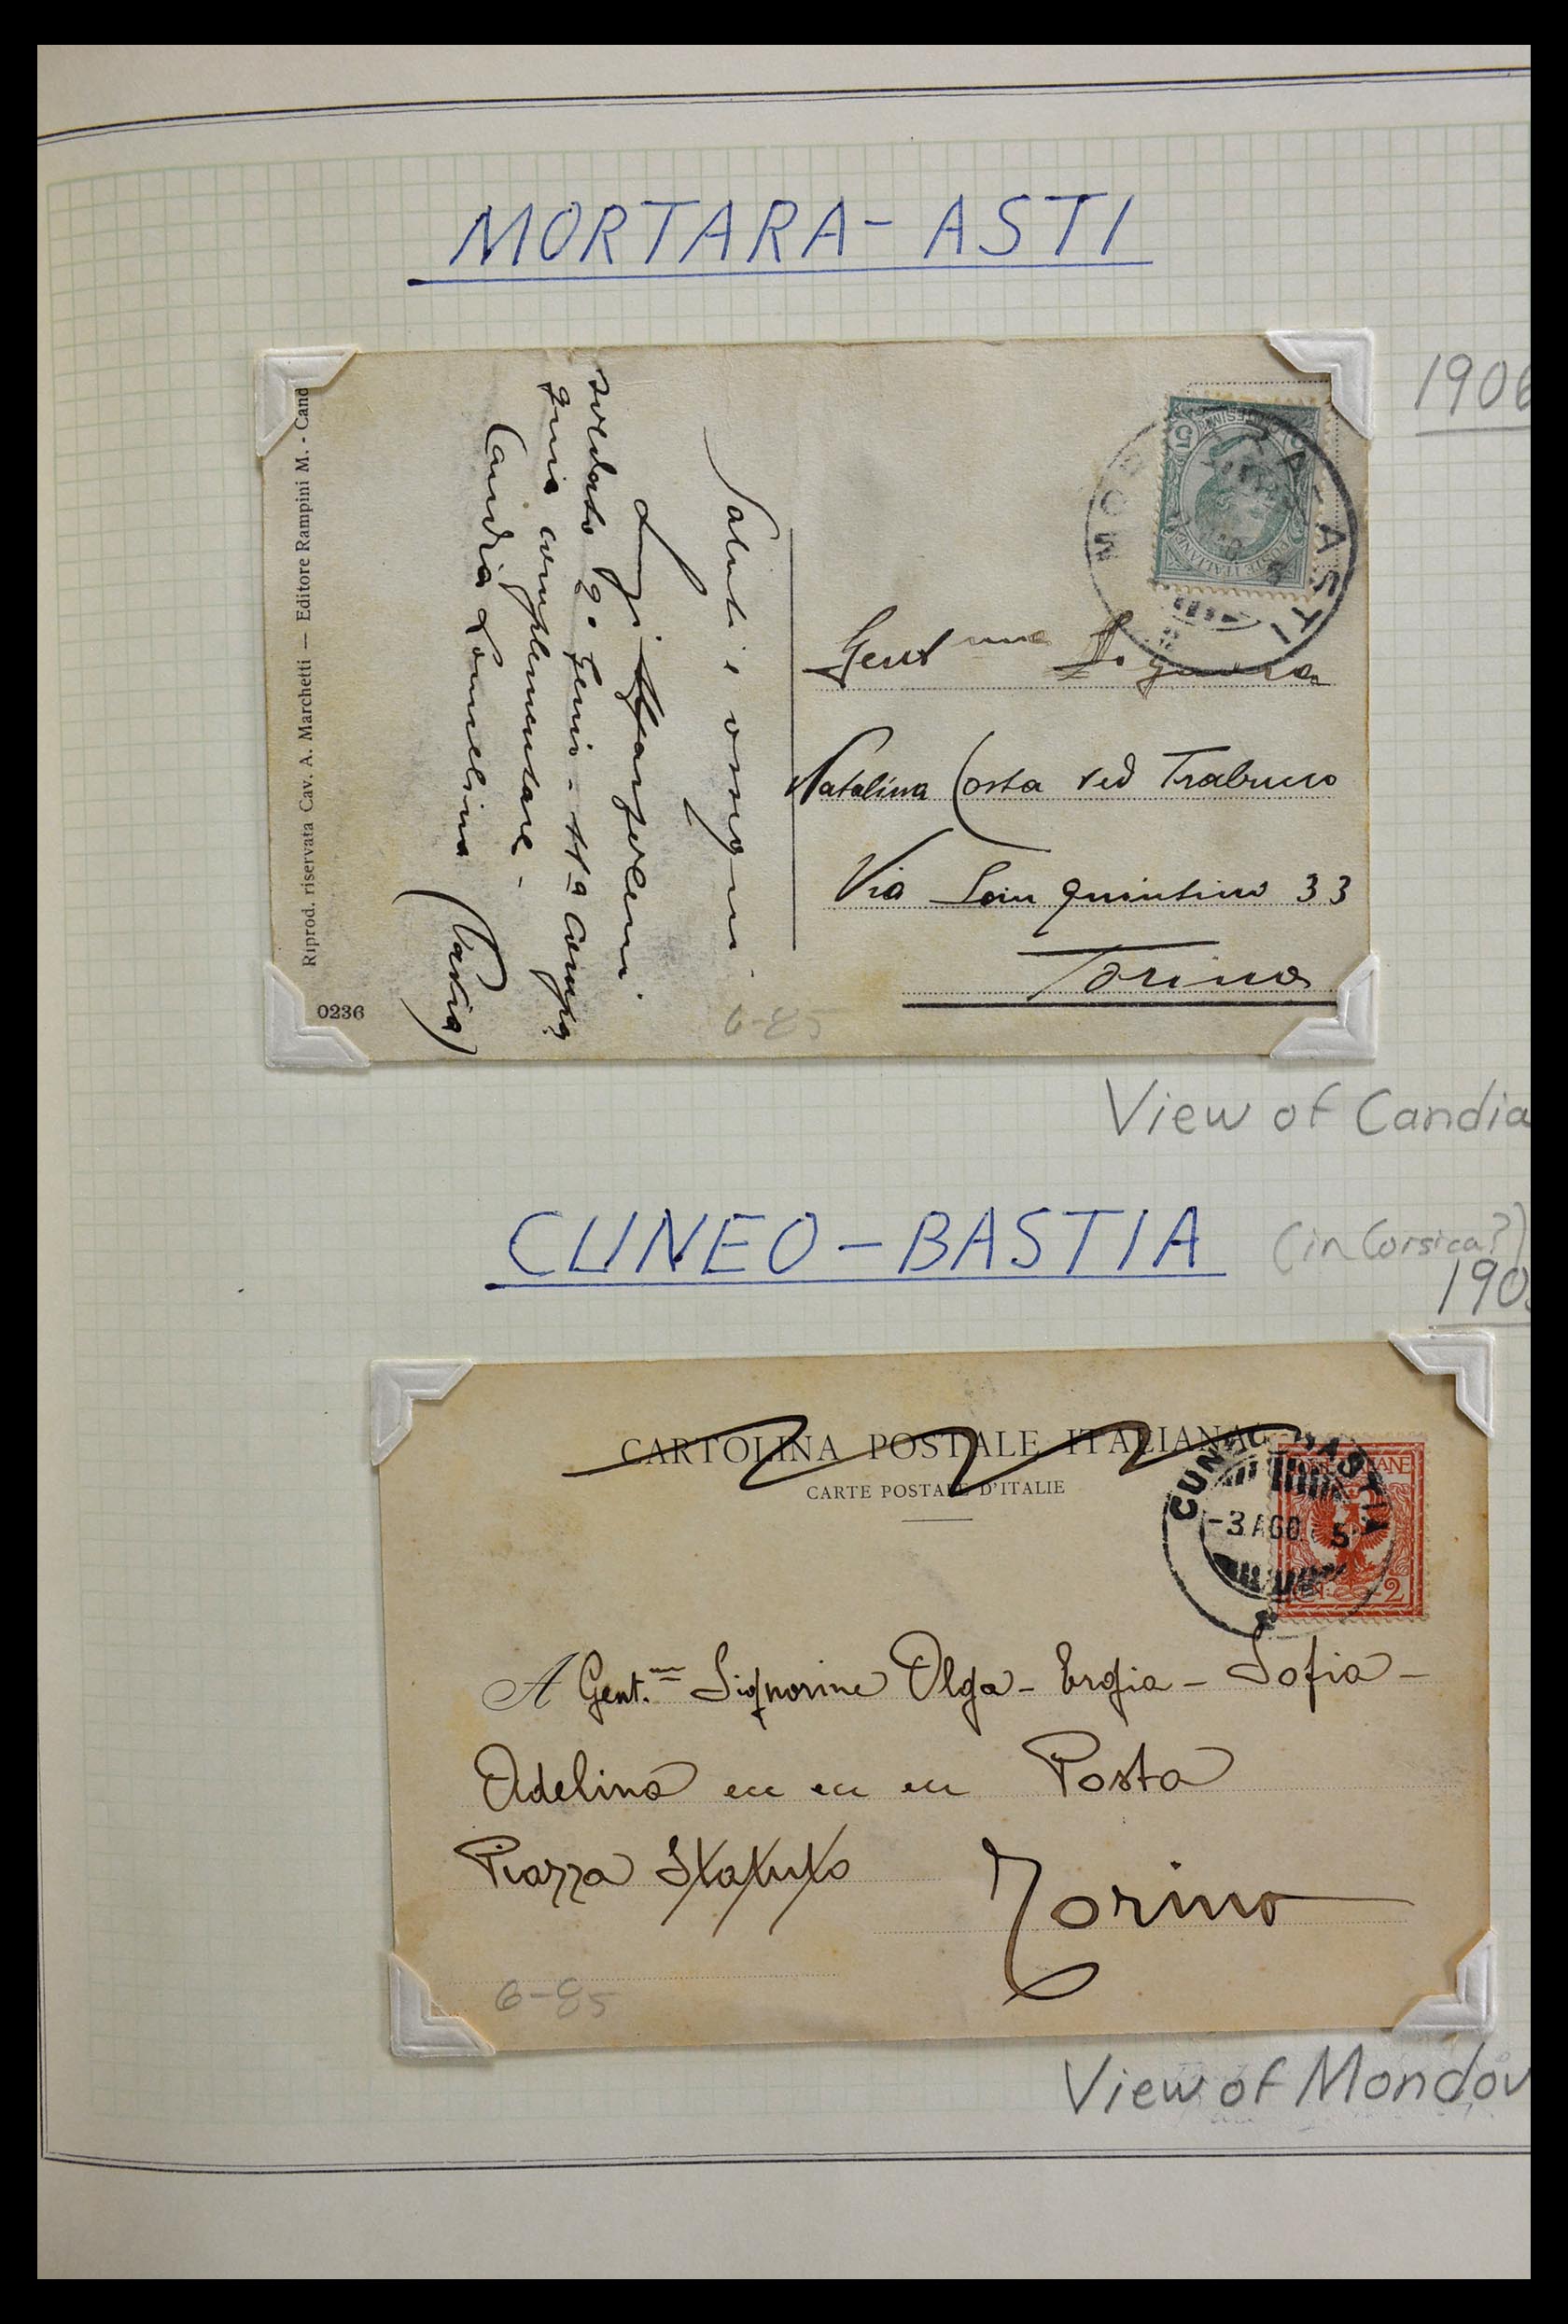 MORTARA-ASTI
1906
Riprod. riservata Cav. A. Marchetti — Editore Rampini M. - Cand
0236
Saluti e ossequi
Luigi
soldato 2° Genio - 11ª Compa
gnia complementare -
Candia Lomellina
(Pavia)
POSTE ITALIANE
5
MOR RA-ASTI
Gent
Natalina Costa ved Trabucco
Via San Quintino 33
Torino
6-85
View of Candia
CUNEO-BASTIA
(in Corsica?)
190
CARTOLINA POSTALE ITALIANA
CARTE POSTALE D'ITALIE
CUNEO-BASTIA
-3 AGO 5
2
A Gent.me Signorine Olga - Ergia - Sofia -
Adelina ecc ecc ecc Posta
Piazza Statuto
Torino
6-85
View of Mondov